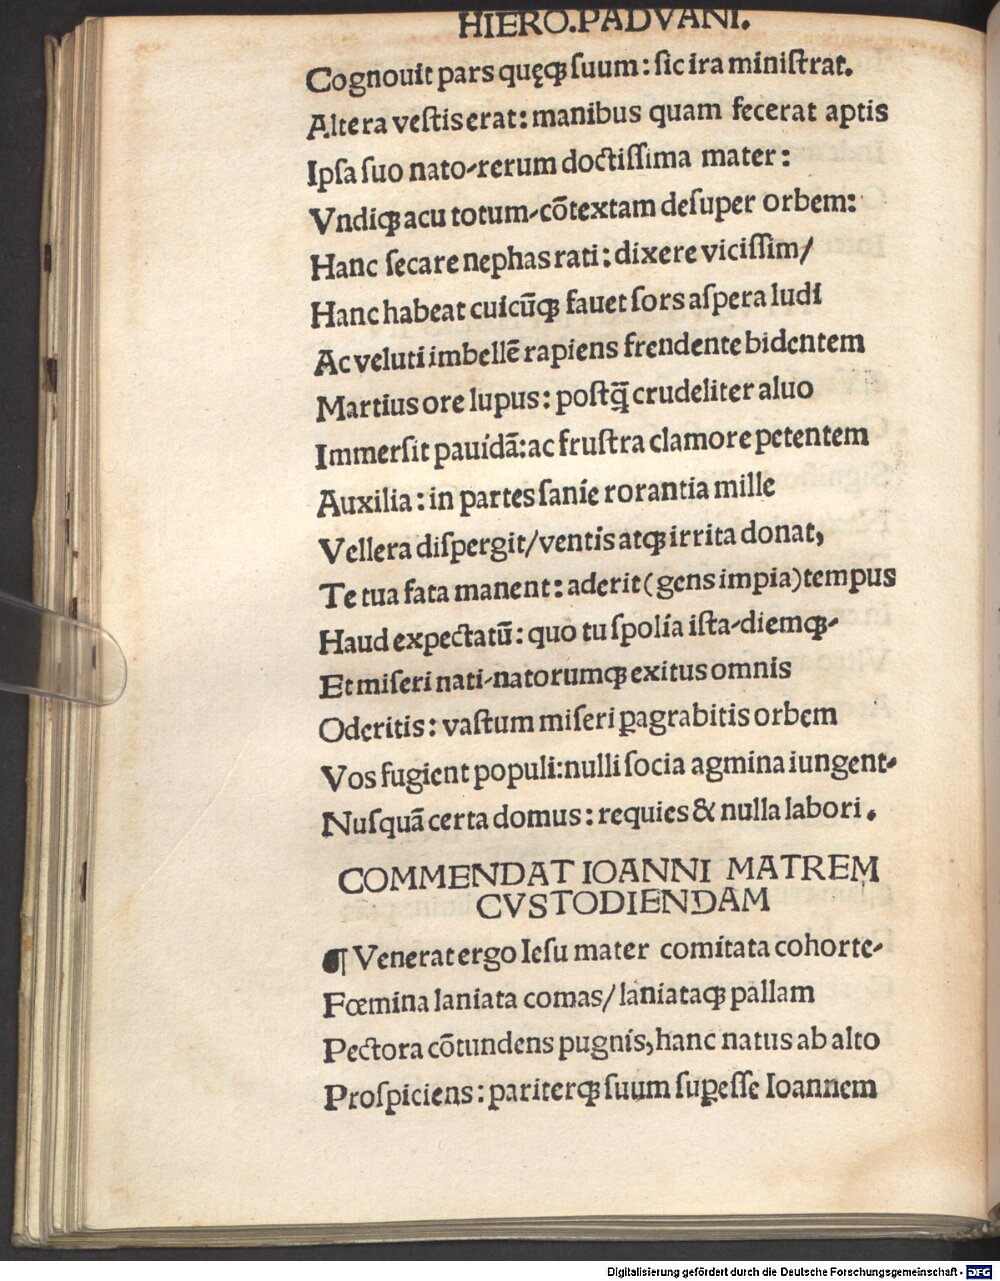 HIERO.PADVANI.
Cognouit pars quęqꝫ ſuum: ſic ira miniſtrat.
Altera veſtis erat: manibus quam fecerat aptis
Ipſa ſuo nato-rerum doctiſſima mater:
Vndiqꝫ acu totum-cõtextam deſuper orbem:
Hanc ſecare nephas rati: dixere viciſſim/
Hanc habeat cuicũqꝫ fauet ſors aſpera ludi
Ac veluti imbellẽ rapiens frendente bidentem
Martius ore lupus: poſtq̃ crudeliter aluo
Immerſit pauidã: ac fruſtra clamore petentem
Auxilia: in partes ſanie rorantia mille
Vellera diſpergit/ventis atqꝫ irrita donat,
Te tua fata manent: aderit (gens impia) tempus
Haud expectatũ: quo tu ſpolia iſta-diemqꝫ-
Et miſeri nati-natorumqꝫ exitus omnis
Oderitis: vaſtum miſeri ꝑagrabitis orbem
Vos fugient populi: nulli ſocia agmina iungent-
Nuſquã certa domus: requies & nulla labori.
COMMENDAT IOANNI MATREM
CVSTODIENDAM
¶ Venerat ergo Ieſu mater comitata cohorte-
Fœmina laniata comas/laniataqꝫ pallam
Pectora cõtundens pugnis, hanc natus ab alto
Proſpiciens: pariterqꝫ ſuum ſuꝑeſſe Ioannem
Digitalisierung gefördert durch die Deutsche Forschungsgemeinschaft - DFG